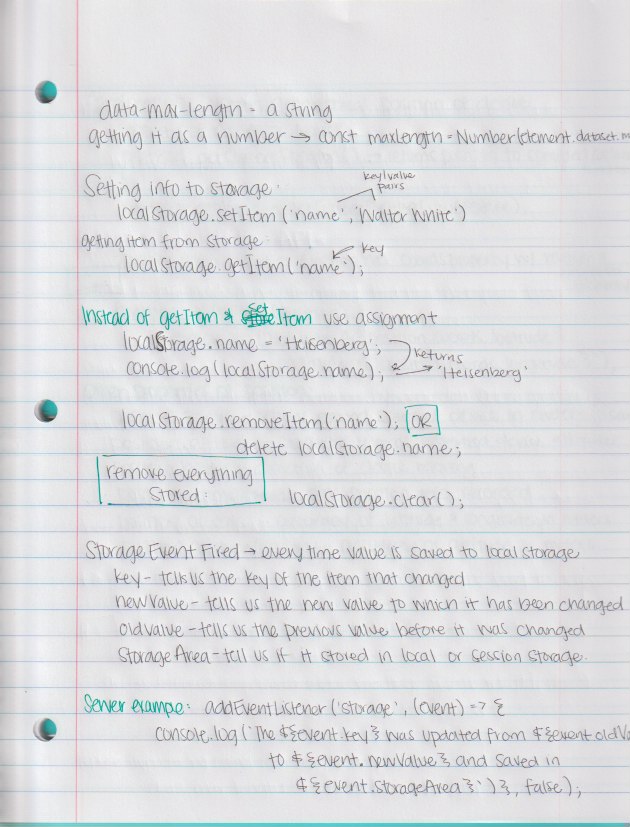 data-max-length = a string
getting it as a number → const maxLength = Number(element.dataset.m
Setting info to storage:
key/value pairs
localStorage.setItem('name', 'Walter White')
getting item from storage
key
localStorage.getItem('name');
Instead of getItem & setItem use assignment
localStorage.name = 'Heisenberg';
returns
console.log(localStorage.name); → 'Heisenberg'
localStorage.removeItem('name'); OR
delete localStorage.name;
remove everything
stored:
localStorage.clear();
Storage Event Fired → every time value is saved to local storage
key - tells us the key of the item that changed
newValue - tells us the new value to which it has been changed
oldValue - tells us the previous value before it was changed
StorageArea - tell us if it stored in local or session storage.
Server example: addEventListener('storage', (event) => {
console.log(`The ${event.key} was updated from ${event.oldV
to ${event.newValue} and saved in
${event.storageArea}`)}, false);